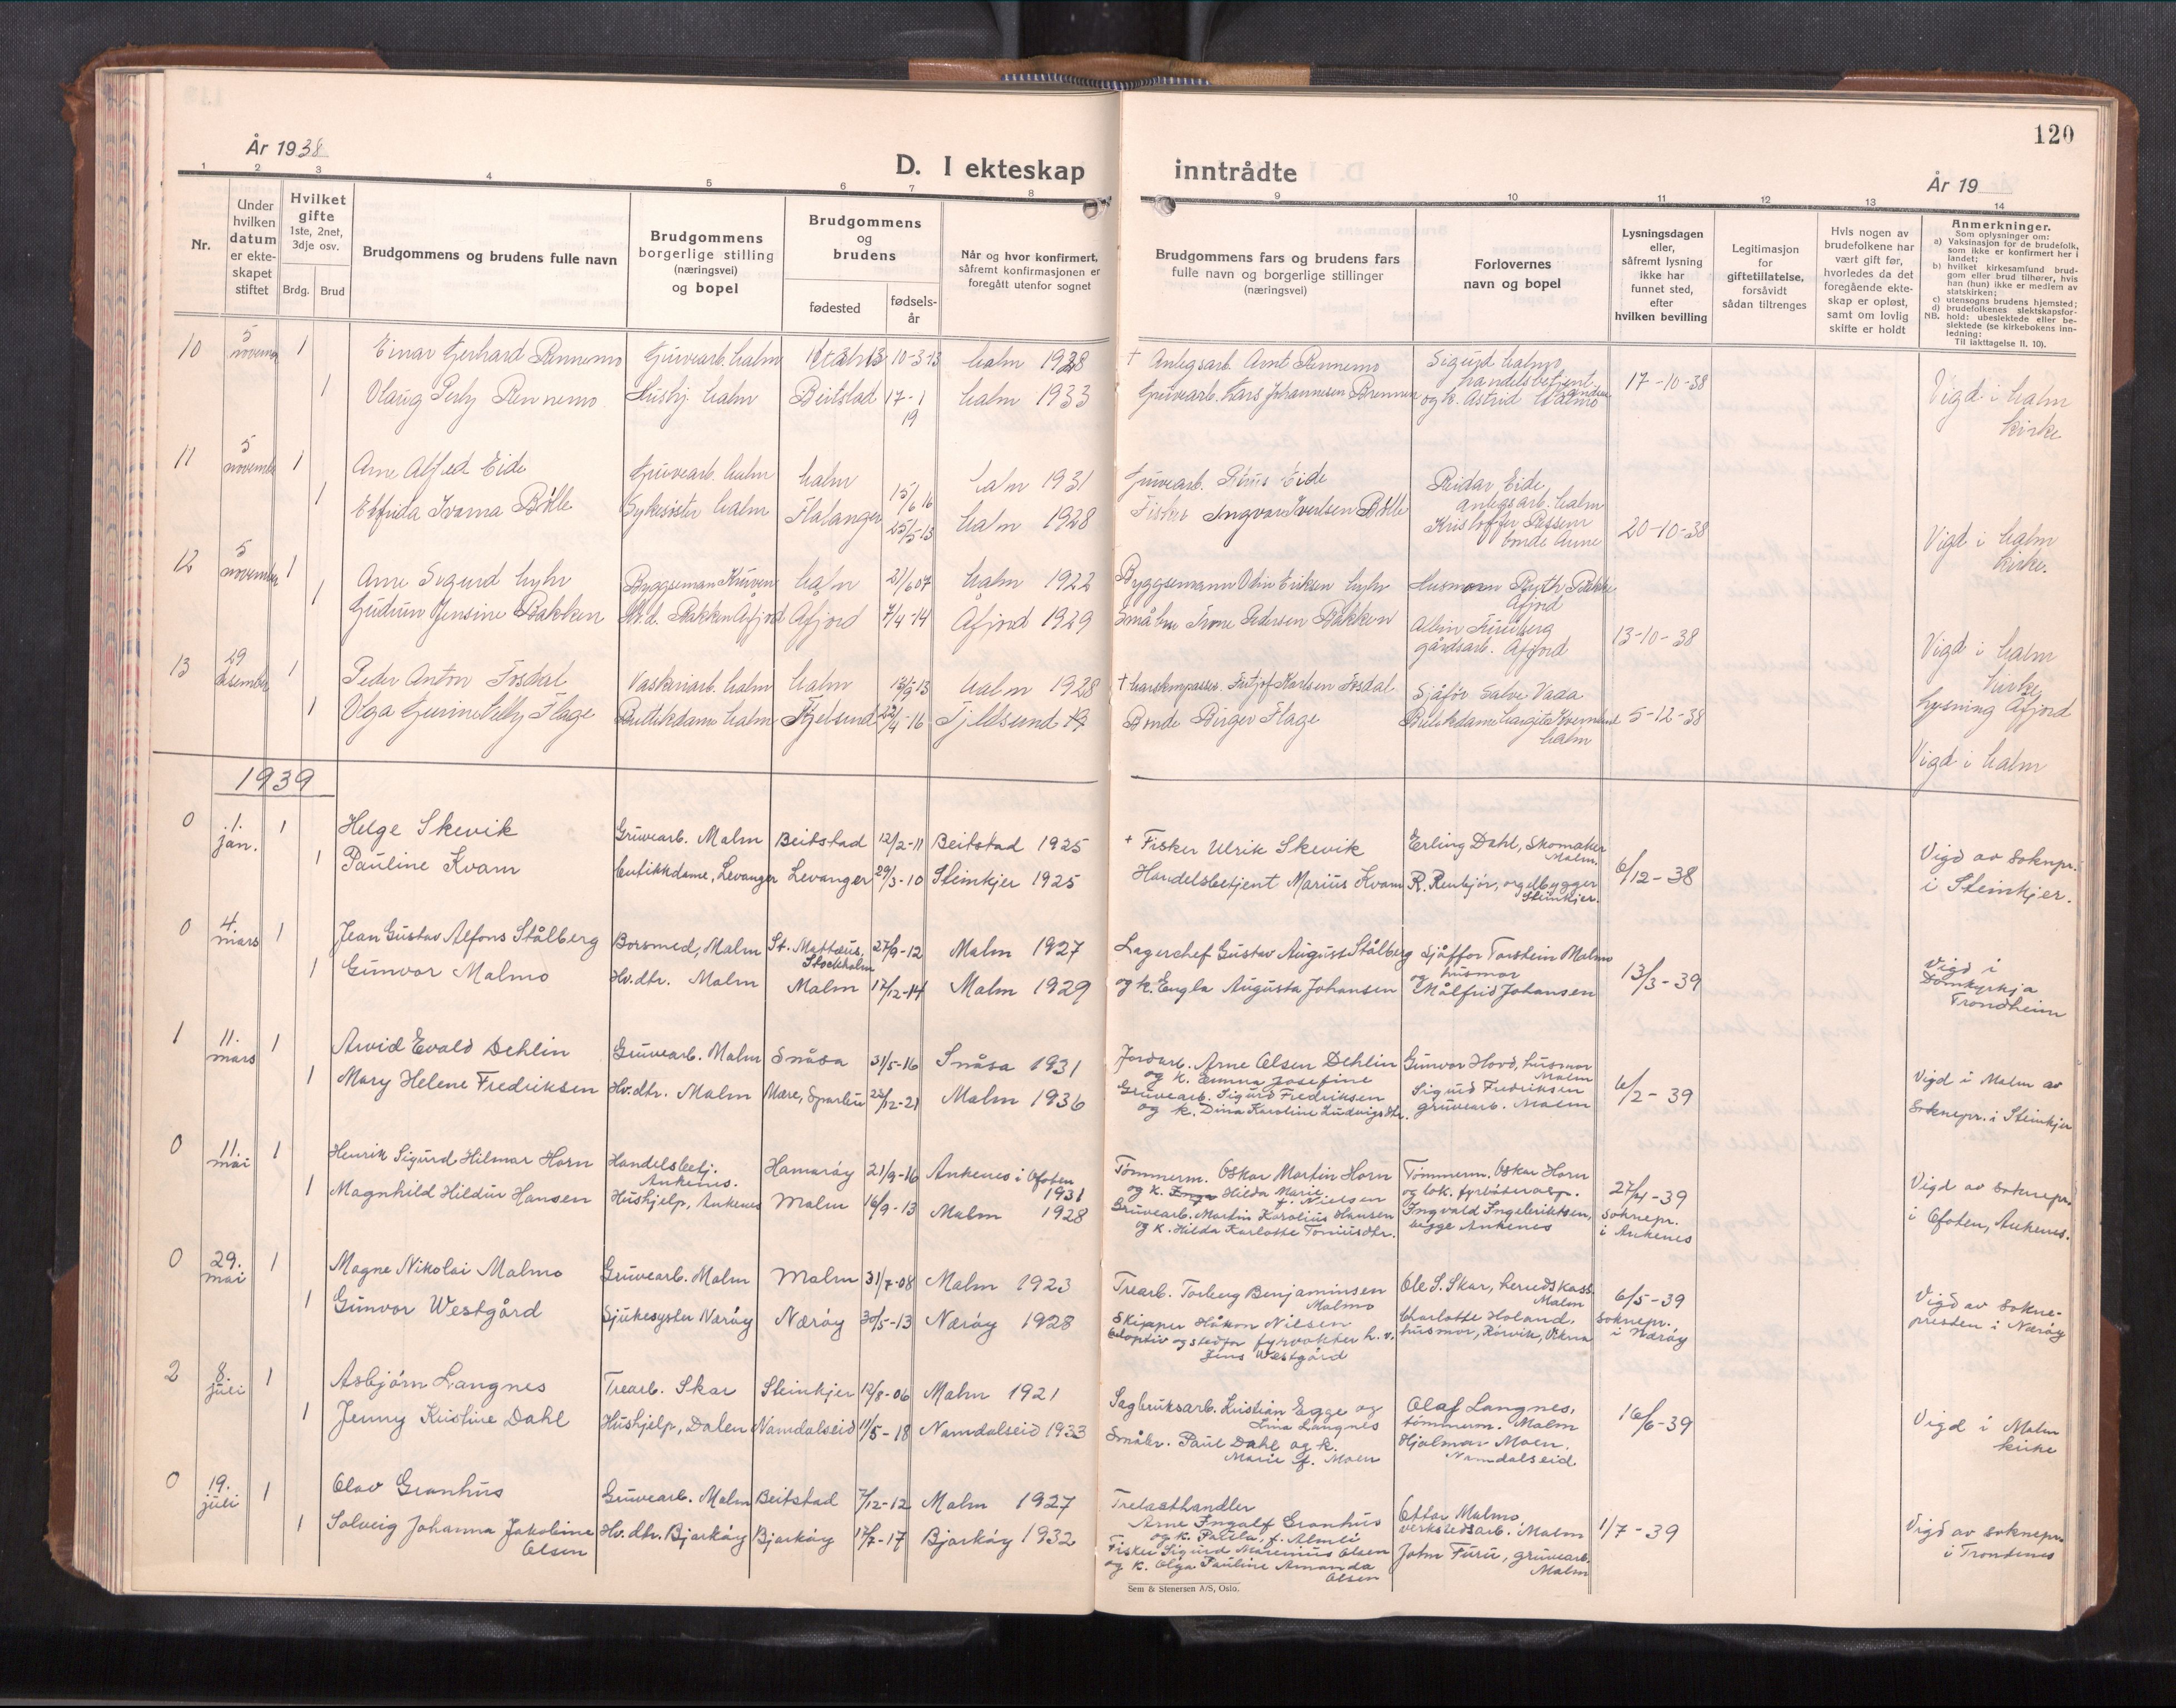 120
År 1938
D. I ekteskap inntrådte
År 19
1 2 3 4 5 6 7 8 9 10 11 12 13 14
Nr.
Under hvilken datum er ekte- skapet stiftet
Hvilket gifte 1ste, 2net, 3dje osv.
Brdg. Brud
Brudgommens og brudens fulle navn
Brudgommens borgerlige stilling (næringsvei) og bopel
Brudgommens og brudens
fødested
fødsels- år
Når og hvor konfirmert, såfremt konfirmasjonen er foregått utenfor sognet
Brudgommens fars og brudens fars fulle navn og borgerlige stillinger (næringsvei)
Forlovernes navn og bopel
Lysningsdagen eller, såfremt lysning ikke har funnet sted, efter hvilken bevilling
Legitimasjon for giftetillatelse, forsåvidt sådan tiltrenges
Hvis nogen av brudefolkene har vært gift før, hvorledes da det foregående ekte- skap er opløst, samt om lovlig skifte er holdt
Anmerkninger.
Som oplysninger om:
a) Vaksinasjon for de brudefolk, som ikke er konfirmert her i landet;
b) hvilket kirkesamfund brud- gom eller brud tilhører, hvis han (hun) ikke er medlem av statskirken;
c) utensogns brudens hjemsted;
d) brudefolkenes slektskapsfor- hold: ubeslektede eller be- slektede (se kirkebokens inn- ledning:
NB.
Til iakttagelse II. 10).
10 5 november 1 Einar Gerhard Rennemo Gruvearb. Malm 10-3-13 Malm 1928 + Anlegsarb. Arnt Rennemo Sigurd Malmo, handelsbetjent 17-10-38 Vigd i Malm kirke
1 Olaug Perly Rennemo Hushj. Malm Beitstad 17-1 19 Malm 1933 Gruvearb. Lars Johannesen og k. Astrid Malmo
11 5 november 1 Arne Alfred Eide Gruvearb. Malm Malm 15/6 16 Malm 1931 Gruvearb. Eide Reidar Eide, anlegsarb. Malm 20-10-38 Vigd i Malm kirke.
1 Ivarna Bølle Sykesøster Malm Flatanger 25/5-13 Malm 1928 Fisker Ingvar Iversen Bølle Kristoffer
12 5 november 1 Arne Sigurd Byggsemann Malm 21/6 07 Malm 1922 Byggsemann Odin Eriksen Husmor Ruth Bakke Åfjord 13-10-38 Vigd i Malm kirke
1 Gudrun Jensine Bakken Hv.d. Bakken Åfjord Åfjord 7/4-14 Åfjord 1929 Pedersen Bakken Albin gårdsarb. Åfjord Lysning Åfjord
13 29 desember 1 Peder Anton Fosdal Vaskeriarb. Malm Malm 13/9-13 Malm 1928 + Fritjof Karlsen Fosdal Sjåfør Salve Vada 5-12-38 Vigd i Malm
1 Olga Gurine Flage Butikkdame Malm 22/4-16 Tjeldsund Bonde Birger Flage Butikkdame Malm
1939
0 1. jan. 1 Helge Skevik Gruvearb. Malm Beitstad 12/2-11 Beitstad 1925 + Fisker Ulrik Skevik Erling Dahl, Skomaker Malm. 6/12-38 Vigd av soknepr. i Steinkjer.
1 Pauline Kvam butikkdame, Levanger Levanger 29/3-10 Steinkjer 1925 Handelsbetjent Marius Kvam R. Renbjør, orgelbygger Steinkjer.
0 4. mars 1 Jean Gustav Alfons Stålberg Borsmed, Malm St. Mattæus, Stockholm 27/9-12 Malm 1927 Lagerchef Gustav August Stålberg Sjåffør Torstein Malmo 13/3-39 Vigd i Domkyrkja Trondheim
1 Gunvor Malmo Hv.dtr. Malm Malm 17/12-14 Malm 1929 og k. Engla Augusta Johansen og husmor Målfrid Johansen
1 11. mars 1 Arvid Evald Dehlin Gruvearb. Malm Snåsa 31/5-16 Snåsa 1931 Jordarb. Arne Olsen Dehlin og k. Emma Josefine Gunvor Hovd, husmor Malm 6/2-39 Vigd i Malm av soknepr. i Steinkjer
1 Mary Helene Fredriksen Hv.dtr. Malm Mære, Sparbu 22/12-21 Malm 1936 Gruvearb. Sigurd Fredriksen og k. Dina Karoline Ludvigsdtr. Sigurd Fredriksen gruvearb. Malm
0 11. mai 1 Henrik Sigurd Hilmar Horn Handelsbetj. Ankenes. Hamarøy 21/9-16 Ankenes i Ofoten 1931 Tømmerm. Oskar Martin Horn og k. Hilda Marie f. Nielsen Tømmerm. Oskar Horn og lok. fyrbøterasp. 27/4-39 soknepr. i Ankenes Vigd av soknepr. i Ofoten, Ankenes.
1 Magnhild Hildur Hansen Hushjelp, Ankenes Malm 16/9-13 Malm 1928 Gruvearb. Martin Karolius Hansen og k. Hilda Karlotte Toniusdtr. Ingvald Ingebriktsen, begge Ankenes
0 29. mai 1 Magne Nikolai Malmo Gruvearb. Malm Malm 31/7-08 Malm 1923 Trearb. Torberg Benjaminsen Malmo Ole S. Skar, heredskass. Malm 6/5-39 soknepr. i Nærøy Vigd av sokne- presten i Nærøy
1 Gunvor Westgård Sjukesyster Nærøy Nærøy 30/5-13 Nærøy 1928 Skipper Håkon Nilsen Adoptiv og stedfar fyrvokter h. v. Jens Westgård Charlotte Holand, husmor, Rørvik, Vikna
2 8. juli 1 Asbjørn Langnes Trearb. Skar Steinkjer 12/8-06 Malm 1921 Sagbruksarb. Kristian Egge og Lina Langnes Olaf Langnes, tømmerm. Malm 16/6-39 Vigd i Malm kirke
1 Jenny Kristine Dahl Hushjelp, Dalen Namdalseid 11/5-18 Namdalseid 1933 Småbr. Paul Dahl og k. Marie f. Moen Hjalmar Moen. Namdalseid
0 19. juli 1 Olav Granhus Gruvearb. Malm Beitstad 7/12-12 Malm 1927 Trelasthandler Arne Ingolf Granhus og k. Paula, f. Almli Ottar Malmo, verkstedsarb. Malm 1/7-39 Vigd av soknepr. i Trondenes
1 Solveig Johanna Jakobine Olsen Hv.dtr. Bjarkøy Bjarkøy 17/7-17 Bjarkøy 1932 Fisker Sigurd Marenius Olsen og k. Olga Pauline Amanda Olsen John Furu, gruvearb. Malm
Sem & Stenersen A/S, Oslo.